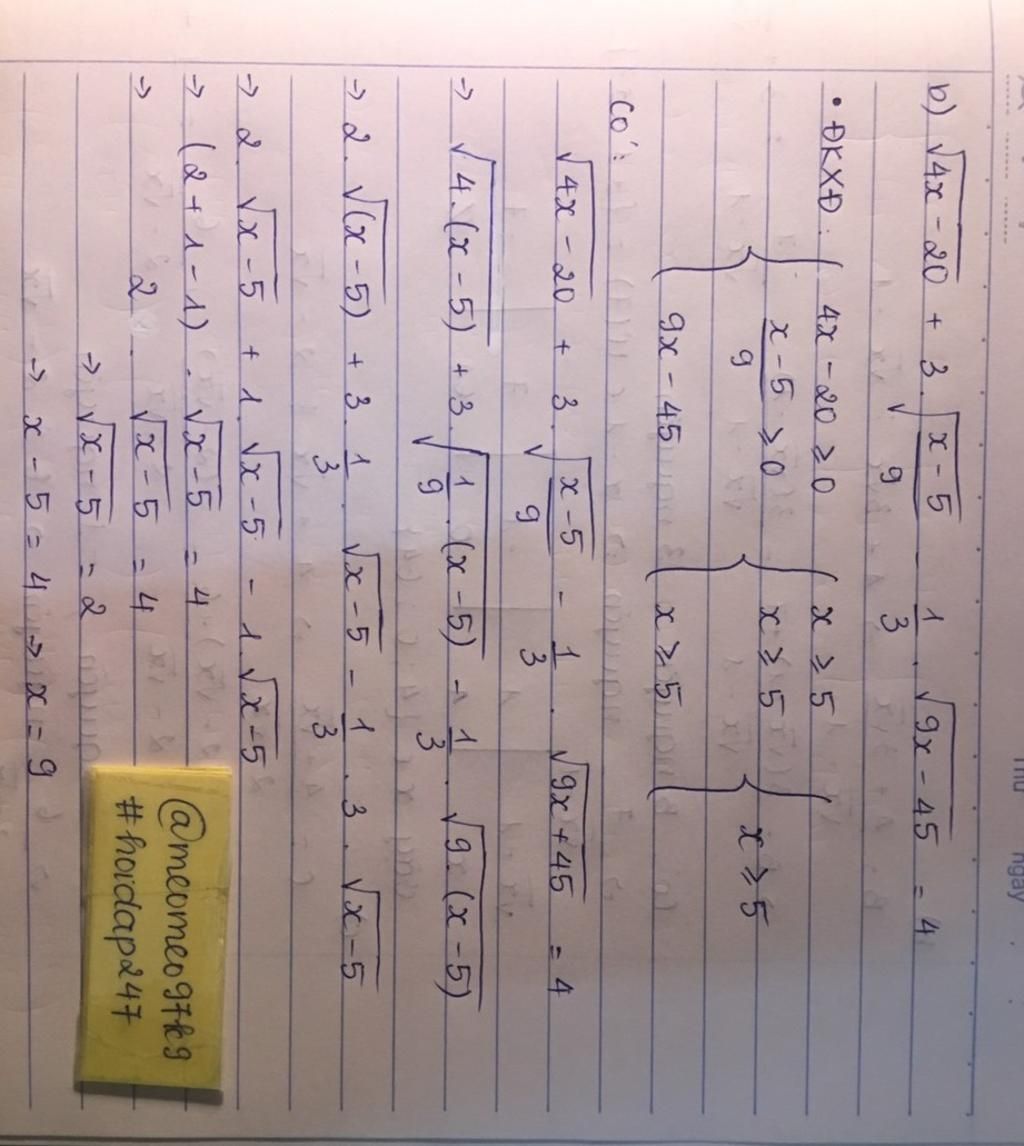 b) √(4x - 20) + 3.√((x - 5)/9) - 1/3.√(9x - 45) = 4
• ĐKXĐ: { 4x - 20 ≥ 0 { x ≥ 5 {
(x - 5)/9 ≥ 0 x ≥ 5 x ≥ 5
9x - 45 x ≥ 5
Có:
√(4x - 20) + 3.√((x - 5)/9) - 1/3.√(9x + 45) = 4
→ √(4.(x - 5)) + 3.√(1/9.(x - 5)) - 1/3.√(9.(x - 5))
→ 2.√(x - 5) + 3.1/3.√(x - 5) - 1/3.3.√(x - 5)
→ 2.√(x - 5) + 1.√(x - 5) - 1.√(x - 5)
→ (2 + 1 - 1).√(x - 5) = 4
→ 2.√(x - 5) = 4
→ √(x - 5) = 2
→ x - 5 = 4 → x = 9
@meomeo97k9
#hoidap247